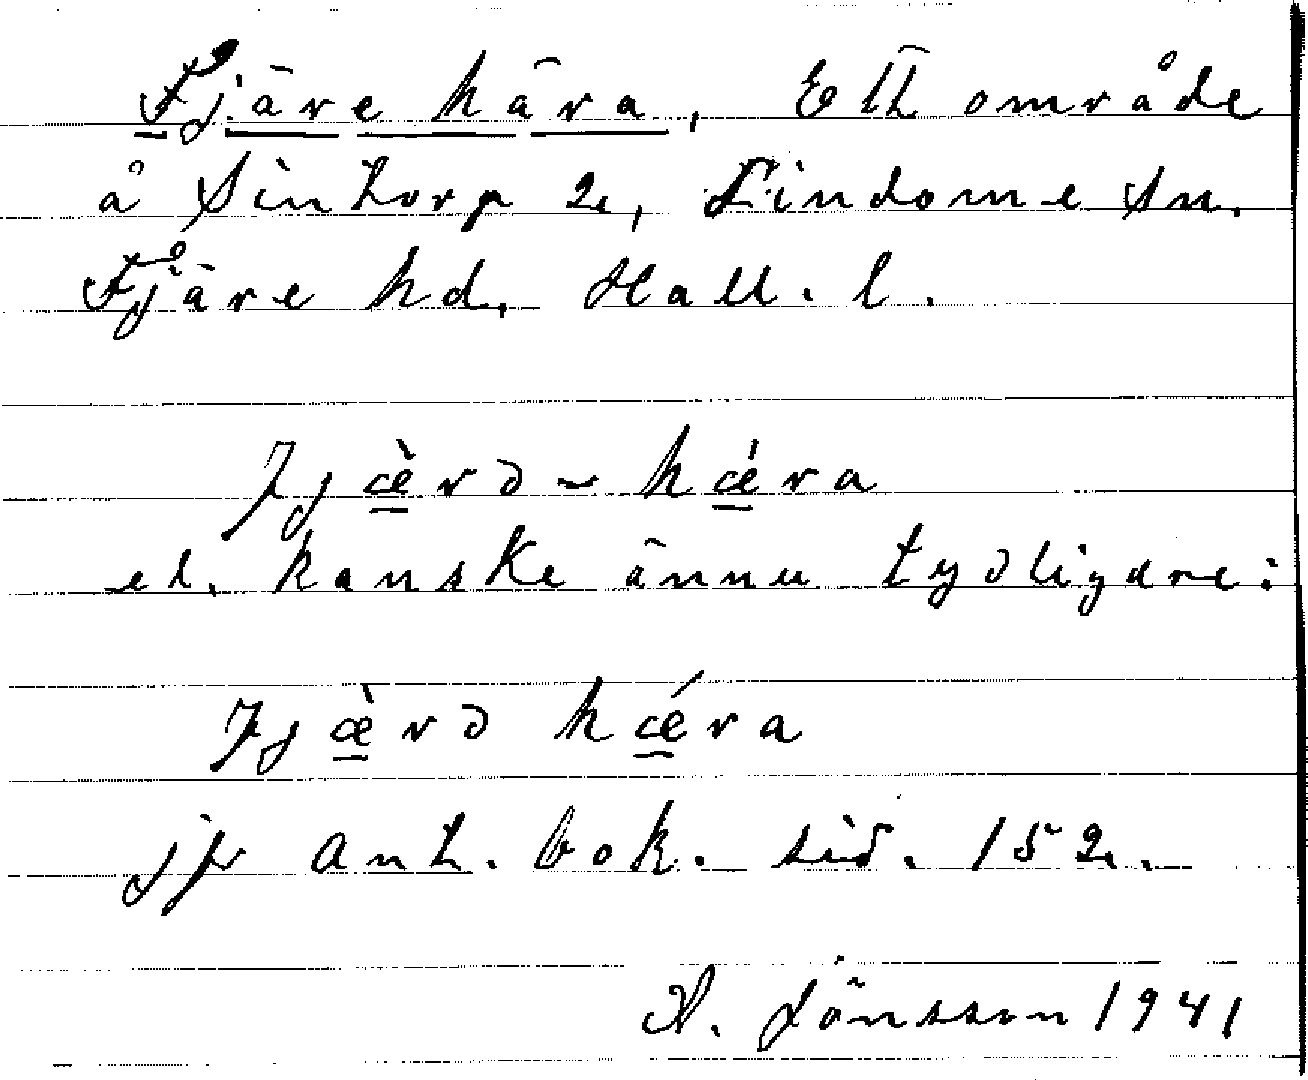 Fjäre hära, Ett område
å Sintorp 2, Lindome sn.
Fjäre hd. Hall. l.
fjæ̀rə-hǽra
el. kanske ännu tydligare:
fjæ̀rə hǽra
jfr Ant. bok. sid. 152.
A. Jönsson 1941